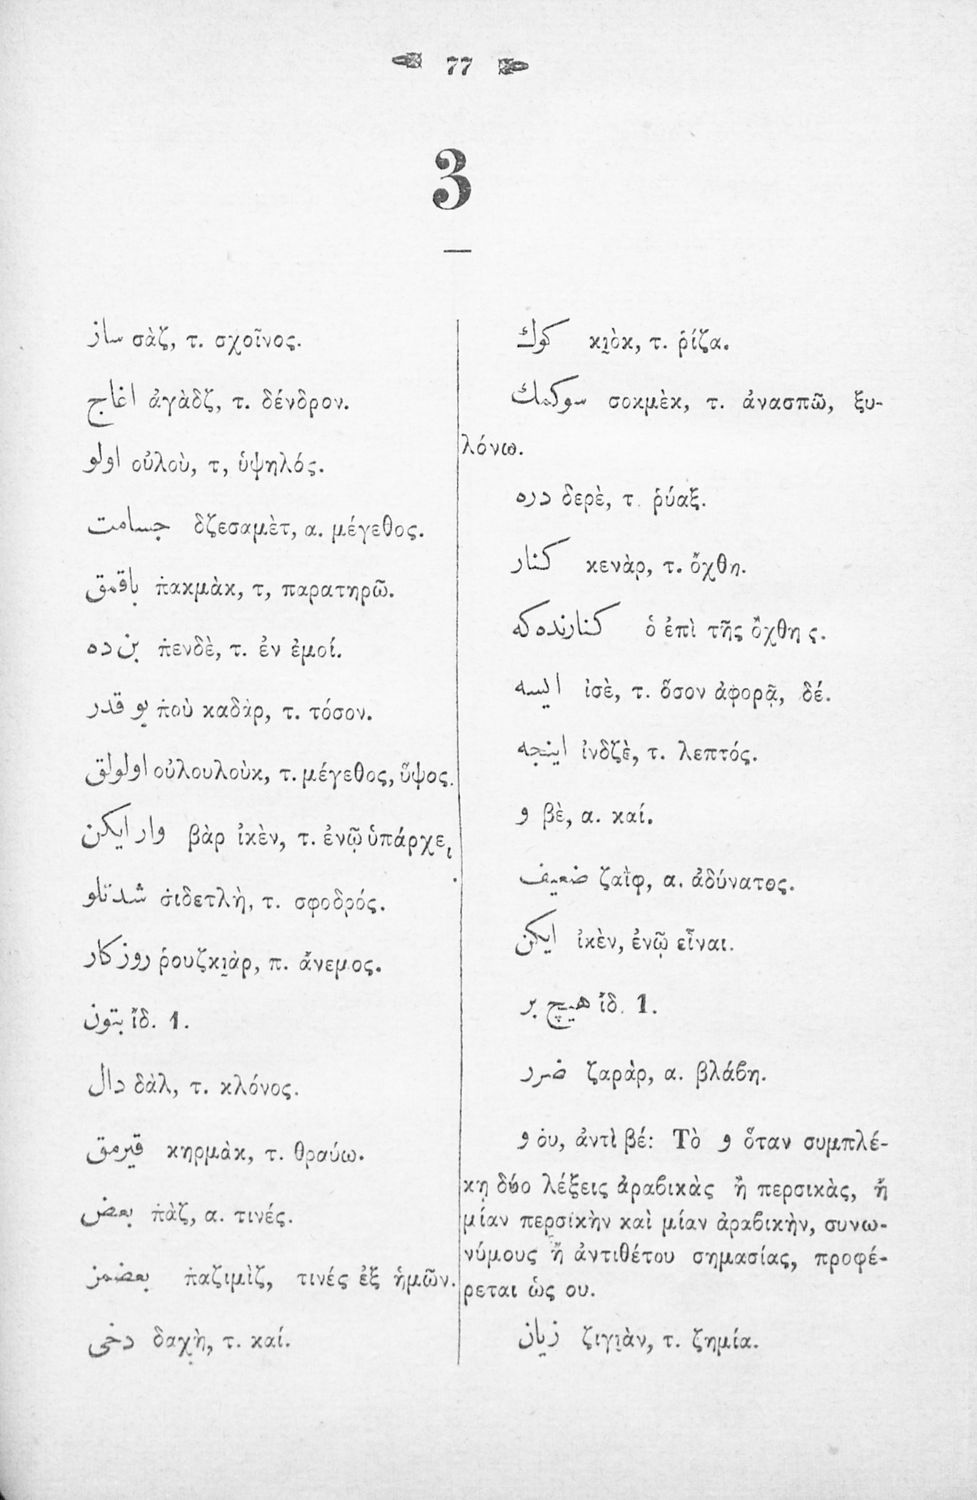 77
3
ساز σὰζ, τ. σχοῖνος.
اغاج ἀγὰδζ, τ. δένδρον.
اولو οὐλοὺ, τ, ὑψηλός.
جسامت δζεσαμὲτ, α. μέγεθος.
باقمق π̇ακμὰκ, τ, παρατηρῶ.
بن ده π̇ενδὲ, τ. ἐν ἐμοί.
بو قدر π̇οὺ καδὰρ, τ. τόσον.
اولولق οὐλουλοὺκ, τ. μέγεθος, ὕψος.
وار ايكن βὰρ ἰκὲν, τ. ἐνῷ ὑπάρχει
شدتلو σ̇ιδετλὴ, τ. σφοδρός.
روزكار ῥουζκι̯ὰρ, π. ἄνεμος.
بتون ἴδ. 1.
دال δὰλ, τ. κλόνος.
قيرمق κηρμὰκ, τ. θραύω.
بعض π̇ὰζ, α. τινές.
بعضمز π̇αζιμὶζ, τινές ἐξ ἡμῶν.
دخى δαχὴ, τ. καί.
كوك κι̯ὸκ, τ. ῥίζα.
سوكمك σοκμὲκ, τ. ἀνασπῶ, ξυ-
λόνω.
دره δερὲ, τ. ῥύαξ.
كنار κενὰρ, τ. ὄχθη.
كنارنده كه ὁ ἐπὶ τῆς ὄχθης.
ايسه ἰσὲ, τ. ὅσον ἀφορᾷ, δέ.
اينجه ἰνδζὲ, τ. λεπτός.
و βὲ, α. καί.
ضعيف ζαὶφ, α. ἀδύνατος.
ايكن ἰκὲν, ἐνῷ εἶναι.
هيچ بر ἴδ. 1.
ضرر ζαρὰρ, α. βλάβη.
و ὀυ, ἀντὶ βέ: Τὸ و ὅταν συμπλέ-
κῃ δύο λέξεις ἀραβικὰς ἢ περσικὰς, ἢ
μίαν περσικὴν καὶ μίαν ἀραβικὴν, συνω-
νύμους ἢ ἀντιθέτου σημασίας, προφέ-
ρεται ὡς ου.
زيان ζιγι̯ὰν, τ. ζημία.